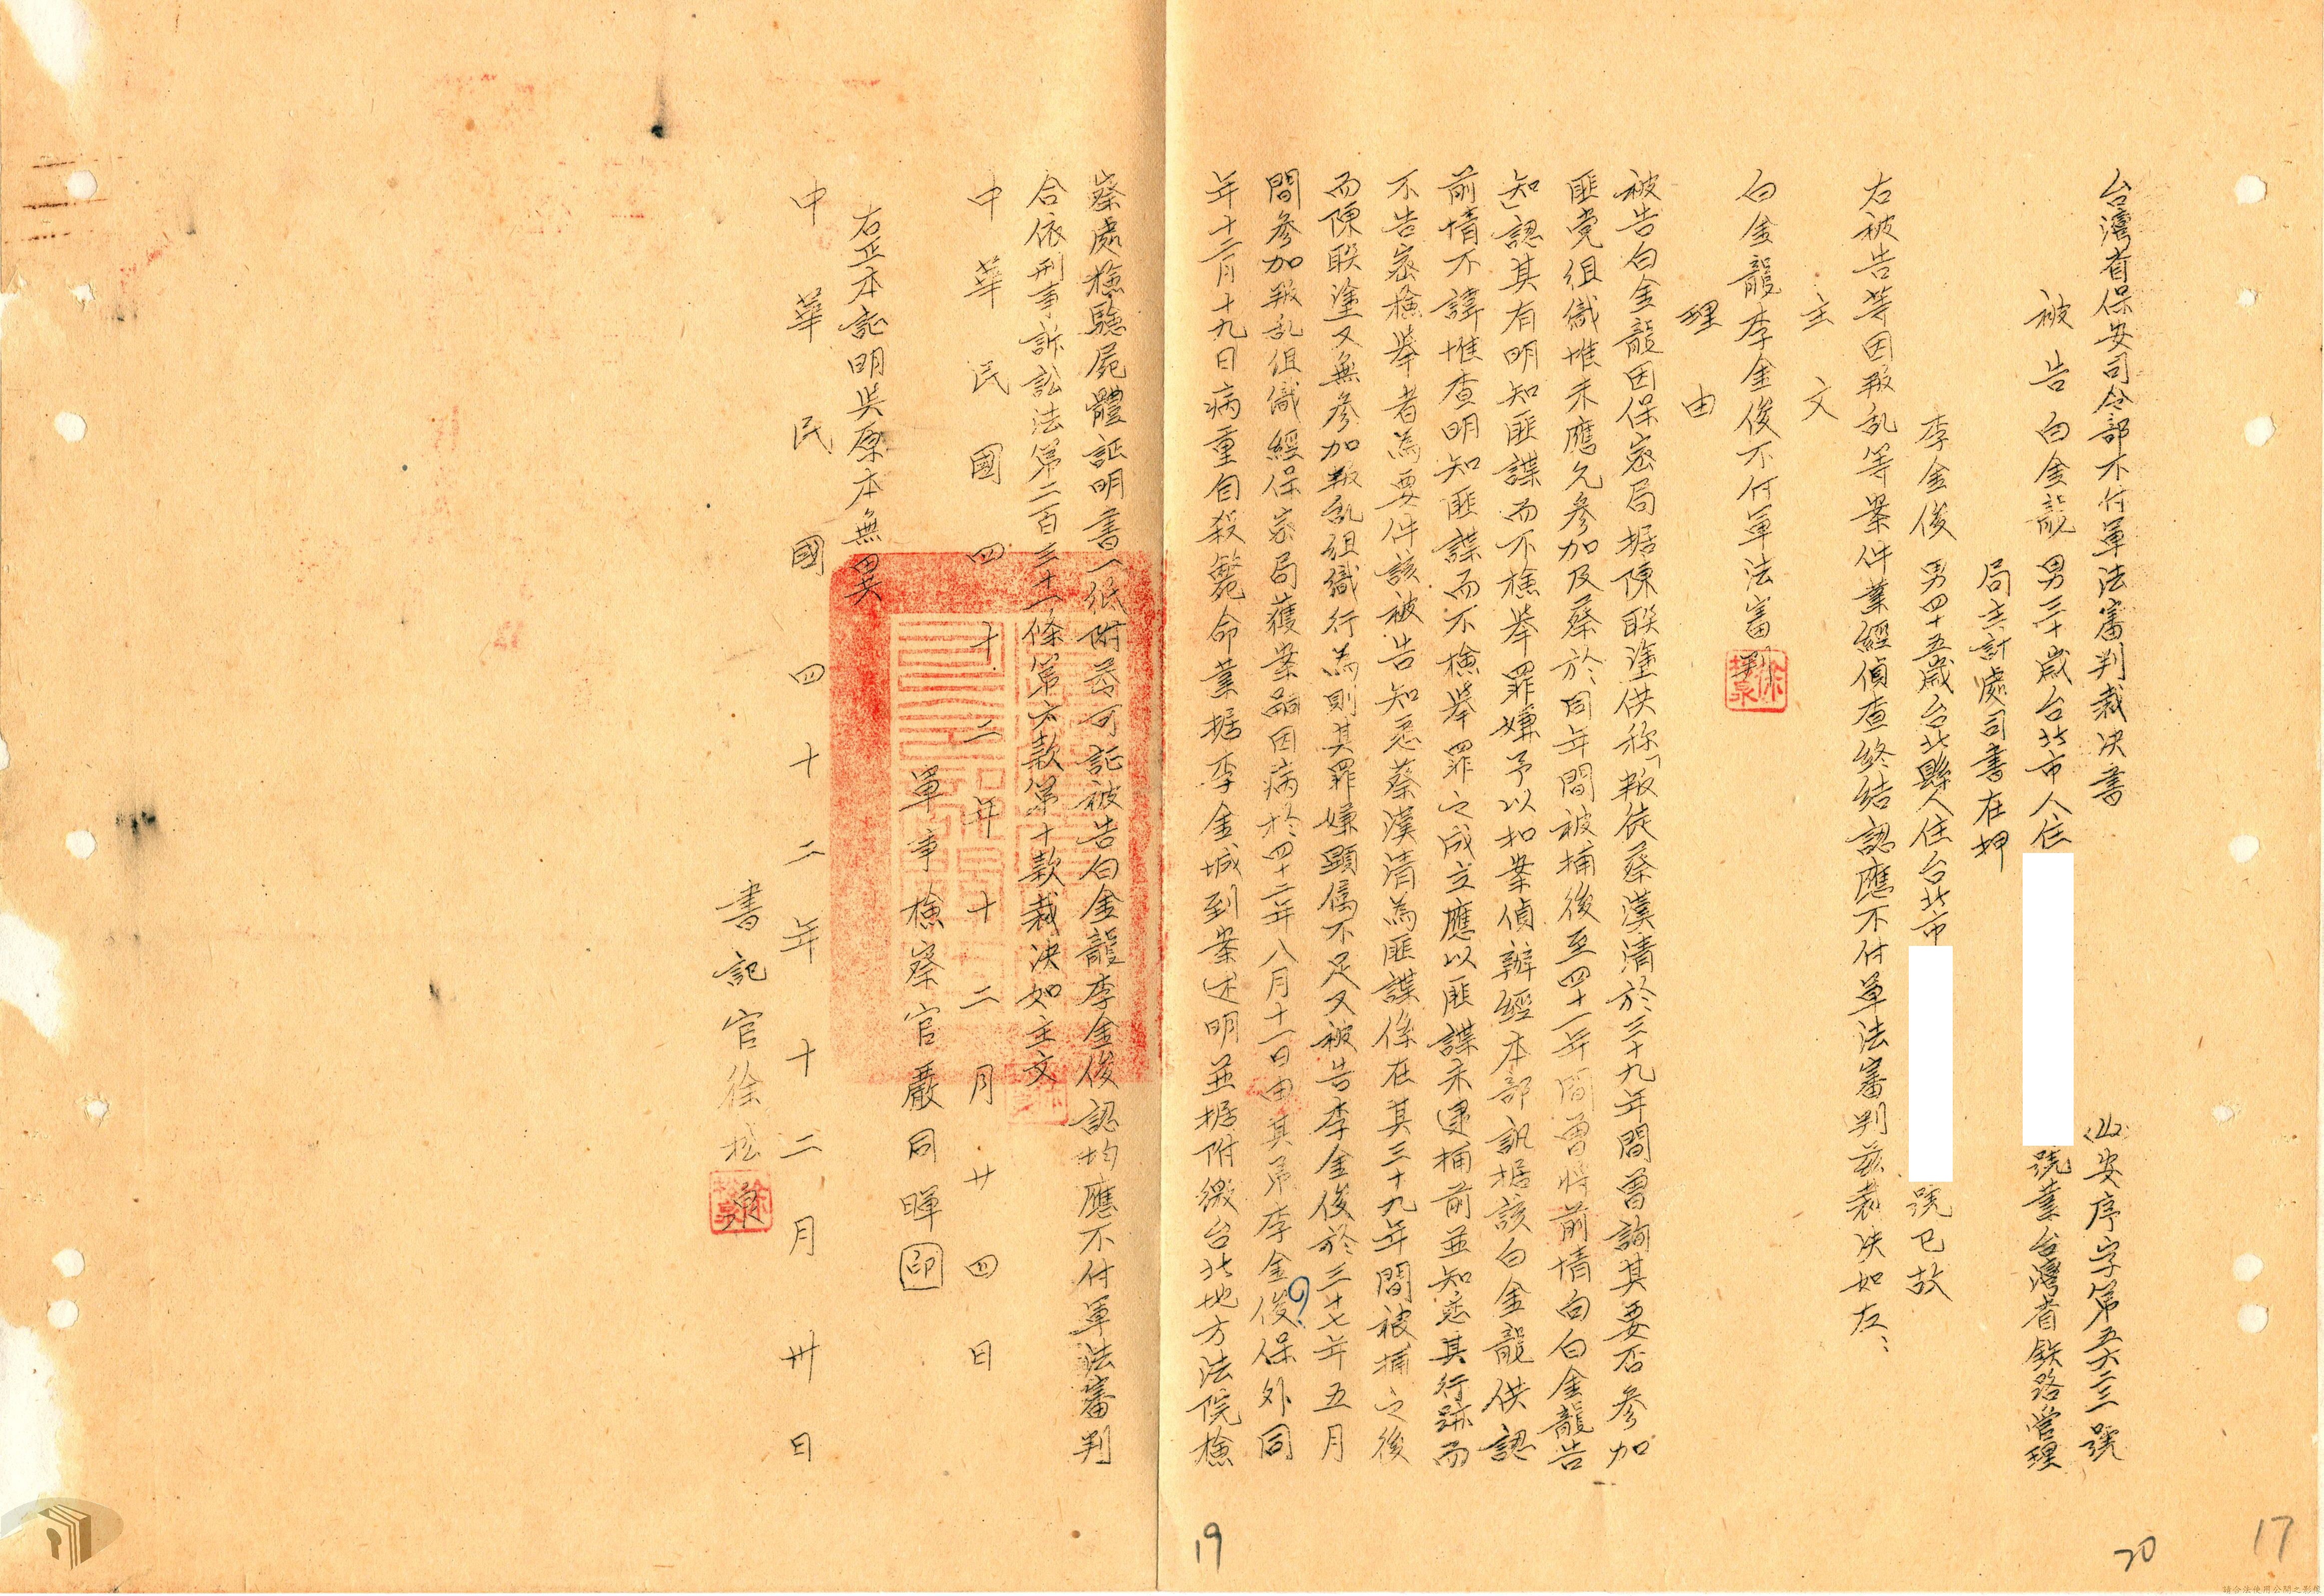 台灣省保安司令部不付軍法審判裁決書
(42)安序字第五六二三號
被告白金龍男三十歲台北市人住
號業台灣省鉄路管理
局主計處司書在押
李金俊男四十五歲台北縣人住台北市
號已故
右被告等因叛乱等案件業經偵查終結認應不付軍法審判茲裁决如左:
主文
白金龍李金俊不付軍法審判
理由
被告白金龍因保密局据陳联塗供称「叛徒蔡漢清於三十九年間曾詢其要否參加
匪党組織惟未應允參加及蔡於同年間被捕後至四十一年間曾將前情向白金龍告
知」認其有明知匪諜而不檢舉罪嫌予以扣案偵辦經本部訊据該白金龍供認
前情不諱惟查明知匪諜而不檢舉罪之成立應以匪諜未逮捕前並知悉其行跡而
不告密檢舉者為要件該被告知悉蔡漢清為匪諜係在其三十九年間被捕之後
而陳联塗又無參加叛乱組織行為則其罪嫌顕屬不足又被告李金俊於三十七年五月
間參加叛乱組織經保密局獲案嗣因病於四十二年八月十一日由其弟李金俊保外同
年十二月十九日病重自殺斃命業据李金城到案述明並据附繳台北地方法院檢
察處檢驗屍體証明書一紙附卷可証被告白金龍李金俊認均應不付軍法審判
合依刑事訴訟法第二百三十一條第六款第十款裁决如主文
中華民國四十二年十二月廿四日
軍事檢察官嚴同暉印
右正本証明與原本無異
中華民國四十二年十二月卅日
書記官徐松泉
19
20
17